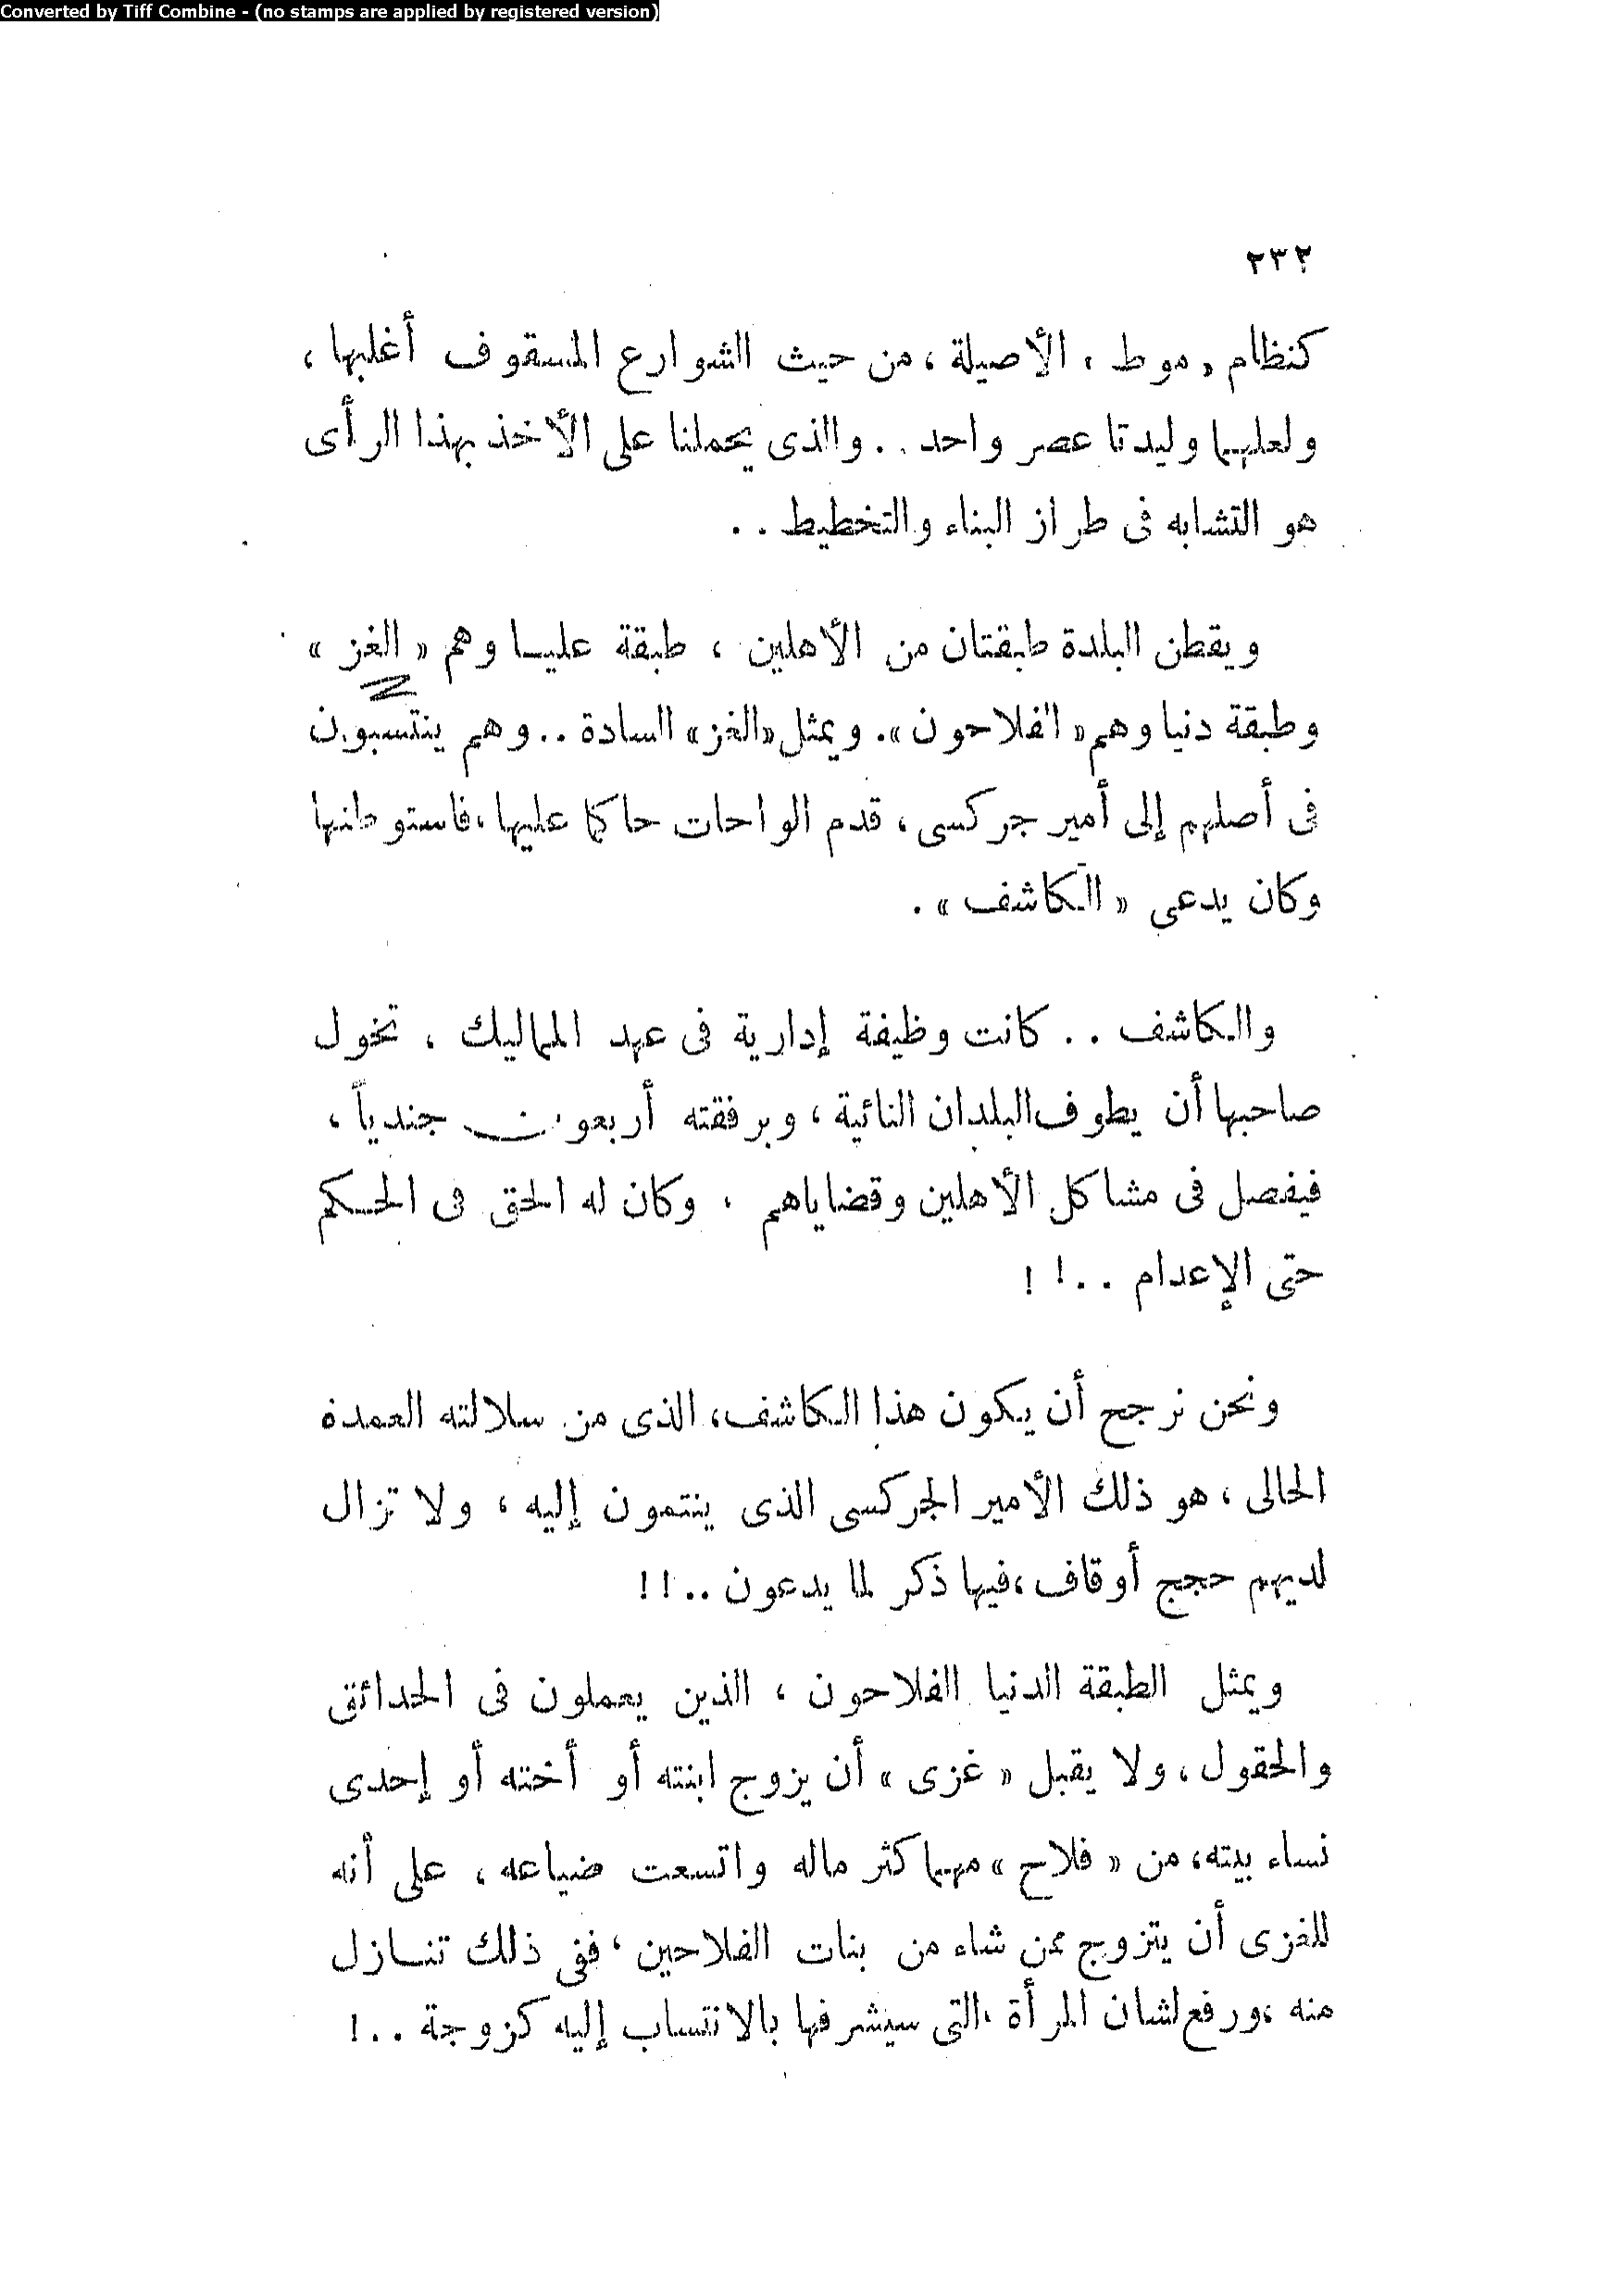 Converted by Tiff Combine - (no stamps are applied by registered version)
٢٣٢
كنظام « موط » الأصيلة ، من حيث الشوارع المسقوف أغلبها ،
ولعلهما وليدتا عصر واحد . . والذى يحملنا على الأخذ بهذا الرأى
هو التشابه فى طراز البناء والتخطيط . .
ويقطن البلدة طبقتان من الأهلين ، طبقة عليا وهم « الغز »
وطبقة دنيا وهم « الفلاحون » . ويمثل « الغز » السادة . . وهم ينتسبون
فى أصلهم إلى أمير جركسى ، قدم الواحات حاكما عليها ، فاستوطنها
وكان يدعى « الكاشف » .
والكاشف . . كانت وظيفة إدارية فى عهد المماليك ، تخول
صاحبها أن يطوف البلدان النائية ، وبرفقته أربعون جندياً ،
فيفصل فى مشاكل الأهلين وقضاياهم . وكان له الحق فى الحكم
حتى الإعدام . . ! !
ونحن نرجح أن يكون هذا الكاشف ، الذى من سلالته العمدة
الحالى ، هو ذلك الأمير الجركسى الذى ينتمون إليه ، ولا تزال
لديهم حجج أوقاف ، فيها ذكر لما يدعون . . ! !
ويمثل الطبقة الدنيا الفلاحون ، الذين يعملون فى الحدائق
والحقول ، ولا يقبل « غزى » أن يزوج ابنته أو أخته أو إحدى
نساء بيته ، من « فلاح » مهما كثر ماله واتسعت ضياعه ، على أنه
للغزى أن يتزوج بمن شاء من بنات الفلاحين ، ففى ذلك تنازل
منه ، ورفع لشان المرأة ، التى سيشرفها بالانتساب إليه كزوجة . . !